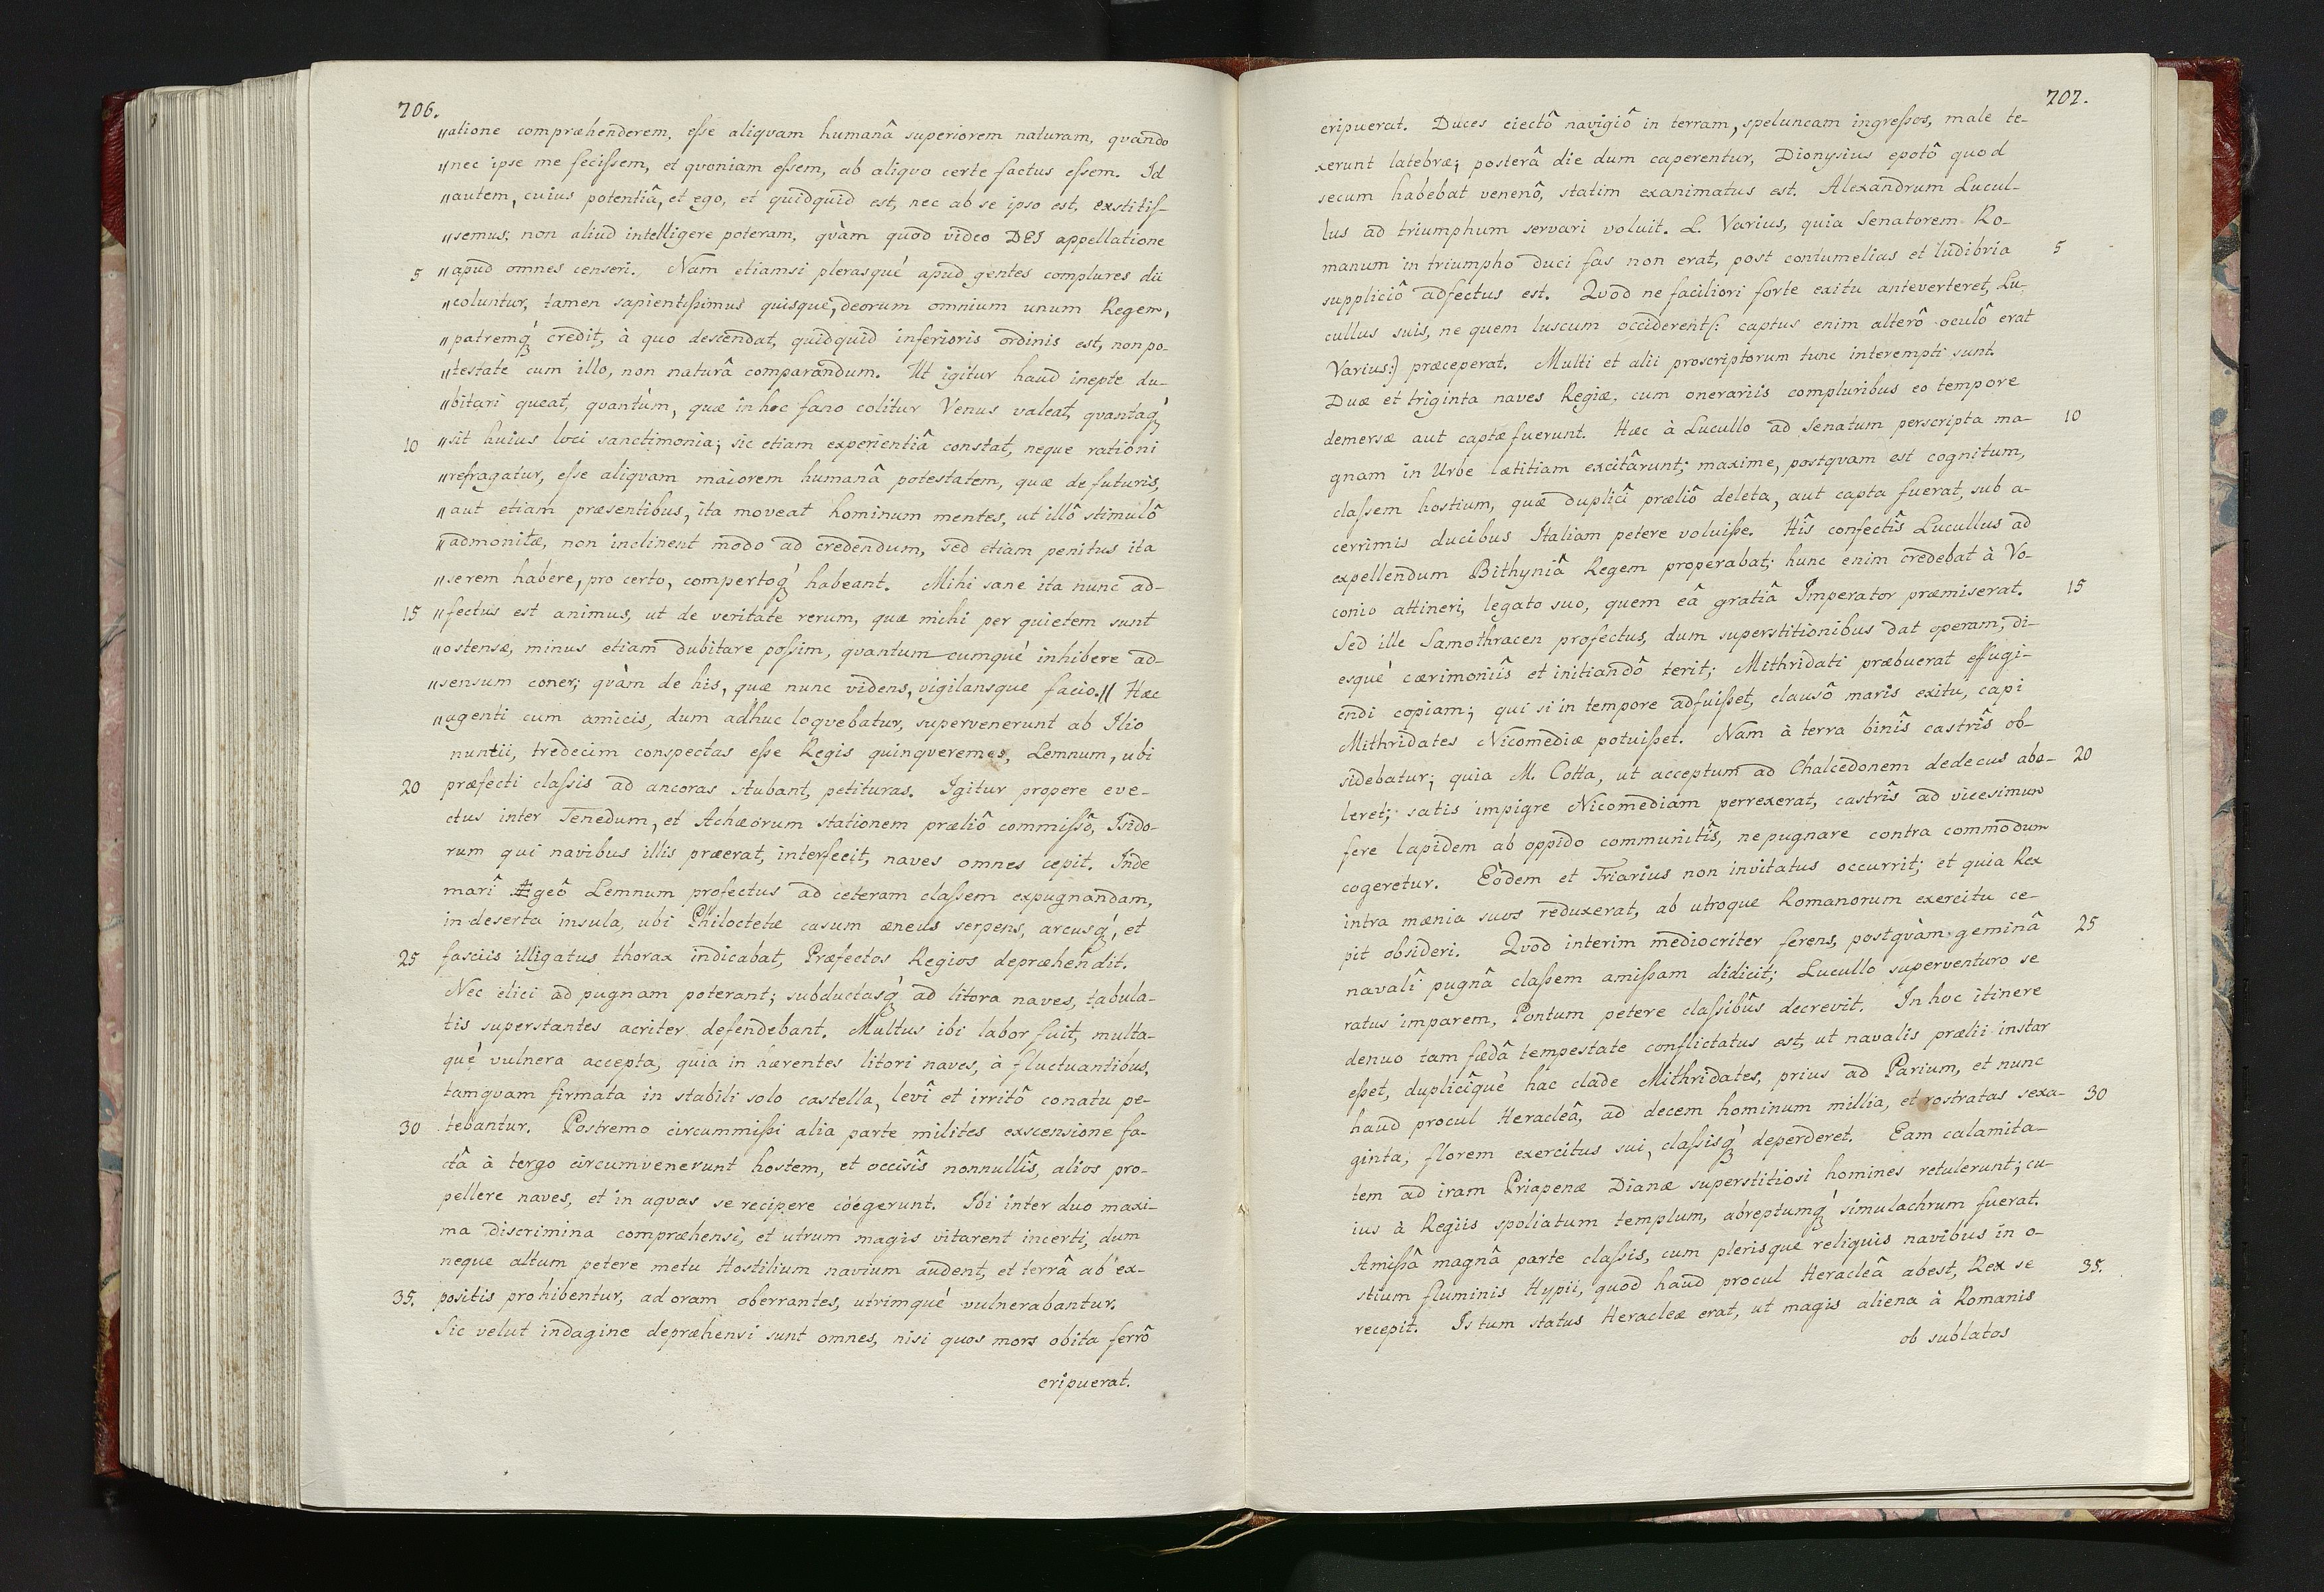 706.
„atione compræhenderem, eſse aliqvam humanâ superiorem naturam, qvando
„nec ipse me feciſsem, et qvoniam eſsem, ab aliqvo certe factus eſsem. Id
„autem, cuius potentiâ, et ego, et quidquid est, nec ab se ipso est, exstitiſ-
„semus; non aliud intelligere poteram, qvàm quod video DEI appellatione
5 „apud omnes censeri. Nam etiamsi plerasque apud gentes complures dii
„coluntur, tamen sapientiſsimus quisque, deorum omnium unum Regem,
„patremq́ credit, à quo descendat, quidquid inferioris ordinis est, non po-
„testate cum illo, non naturâ comparandum. Ut igitur haud inepte du-
„bitari queat, qvantùm, quæ in hoc fano colitur Venus valeat, qvantaq́
10 „sit huius loci sanctimonia; sic etiam experientiâ constat, neque rationi
„refragatur, eſse aliqvam maiorem humanâ potestatem, quæ de futuris,
„aut etiam præsentibus, ita moveat hominum mentes, ut illô stimulô
„admonitæ, non inclinent modo ad credendum, sed etiam penitus ita
„se rem habere, pro certo, compertoq́ habeant. Mihi sane ita nunc ad-
15 „fectus est animus, ut de veritate rerum, quæ mihi per quietem sunt
„ostensæ, minus etiam dubitare poſsim, qvantum cumqué inhibere ad-
„sensum coner; qvàm de his, quæ nunc videns, vigilansque facio.„ Hæc
„agenti cum amicis, dum adhuc loqvebatur, supervenerunt ab Ilio
nuntii, tredecim conspectas eſse Regis quinqveremes, Lemnum, ubi
20 præfecti claſsis ad ancoras stabant, petituras. Igitur propere eve-
ctus inter Tenedum, et Achæorum stationem præliô commiſsô, Isido-
rum qui navibus illis præerat, interfecit, naves omnes cepit. Inde
marî Ægeô Lemnum profectus ad ceteram claſsem expugnandam,
in deserta insula, ubi Philoctetæ casum æneus serpens, arcusq́, et
25 fasciis illigatus thorax indicabat, Præfectos Regios depræhendit.
Nec elici ad pugnam poterant; subductasq́ ad litora naves, tabula-
tis superstantes acriter defendebant. Multus ibi labor fuit, multa-
qué vulnera accepta, quia in hærentes litori naves, à fluctuantibus,
tamqvam firmata in stabili solo castella, levî et irritô conatu pe-
30 tebantur. Postremo circummiſsi alia parte milites exscensione fa-
ctâ à tergo circumvenerunt hostem, et occisîs nonnullîs, alios pro-
pellere naves, et in aqvas se recipere coëgerunt. Ibi inter duo maxi-
ma discrimina compræhensi, et utrum magis vitarent incerti, dum
neque altum petere metu Hostilium navium audent, et terrâ ab ex-
35. positis prohibentur, ad oram oberrantes, utrimqué vulnerabantur.
Sic velut indagine depræhensi sunt omnes, nisi quos mors obita ferrô
eripuerat.
707.
eripuerat. Duces eiectô navigiô in terram, speluncam ingreſsos, male te-
xerunt latebræ; posterâ die dum caperentur, Dionysius epotô quod
secum habebat venenô, statim exanimatus est. Alexandrum Lucul-
lus ad triumphum servari voluit. L. Varius, quia Senatorem Ro-
manum in triumpho duci fas non erat, post contumelias et ludibria 5
suppliciô adfectus est. Qvod ne faciliori forte exitu anteverteret, Lu-
cullus suis, ne quem luscum occiderent (: captus enim alterô oculô erat
Varius:) præceperat. Multi et alii proscriptorum tunc interempti sunt.
Duæ et triginta naves Regiæ, cum onerariis compluribus eo tempore
demersæ aut captæ fuerunt. Hæc à Lucullo ad Senatum perscripta ma- 10
gnam in Urbe lætitiam excitârunt; maxime, postqvam est cognitum,
claſsem hostium, quæ duplicî præliô deleta, aut capta fuerat, sub a-
cerrimis ducibus Italiam petere voluiſse. Hîs confectîs Lucullus ad
expellendum Bithyniâ Regem properabat; hunc enim credebat à Vo-
conio attineri, legato suo, quem eâ gratiâ Imperator præmiserat. 15
Sed ille Samothracen profectus, dum superstitionibus dat operam, di-
esqué cærimoniîs et initiandô terit; Mithridati præbuerat effugi-
endi copiam; qui si in tempore adfuiſset, clausô maris exitu, capi
Mithridates Nicomediæ potuiſset. Nam à terra binîs castrîs ob-
sidebatur; quia M. Cotta, ut acceptum ad Chalcedonem dedecus abo- 20
leret; satis impigre Nicomediam perrexerat, castrîs ad vicesimum
fere lapidem ab oppido communitîs, ne pugnare contra commodum
cogeretur. Eòdem et Triarius non invitatus occurrit; et quia Rex
intra mænia suos reduxerat, ab utroque Romanorum exercitu ce-
pit obsideri. Qvod interim mediocriter ferens, postqvàm geminâ 25
navalî pugnâ claſsem amiſsam didicit; Lucullo superventuro se
ratus imparem, Pontum petere claſsibûs decrevit. In hoc itinere
denuo tam fædâ tempestate conflictatus est, ut navalis prælii instar
eſset, duplicîqué hac clade Mithridates, prius ad Parium, et nunc
haud procul Heracleâ, ad decem hominum millia, et rostratas sexa- 30
ginta, florem exercitus sui, claſsisq́ deperderet. Eam calamita-
tem ad iram Priapenæ Dianæ superstitiosi homines retulerunt; cu-
ius à Regiis spoliatum templum, abreptumq́ simulachrum fuerat.
Amiſsâ magnâ parte claſsis, cum plerisque reliquis navibus in o-
stium fluminis Hypii, quod haud procul Heracleâ abest, Rex se 35.
recepit. Is tum status Heracleæ erat, ut magis aliena à Romanis
ob sublatos